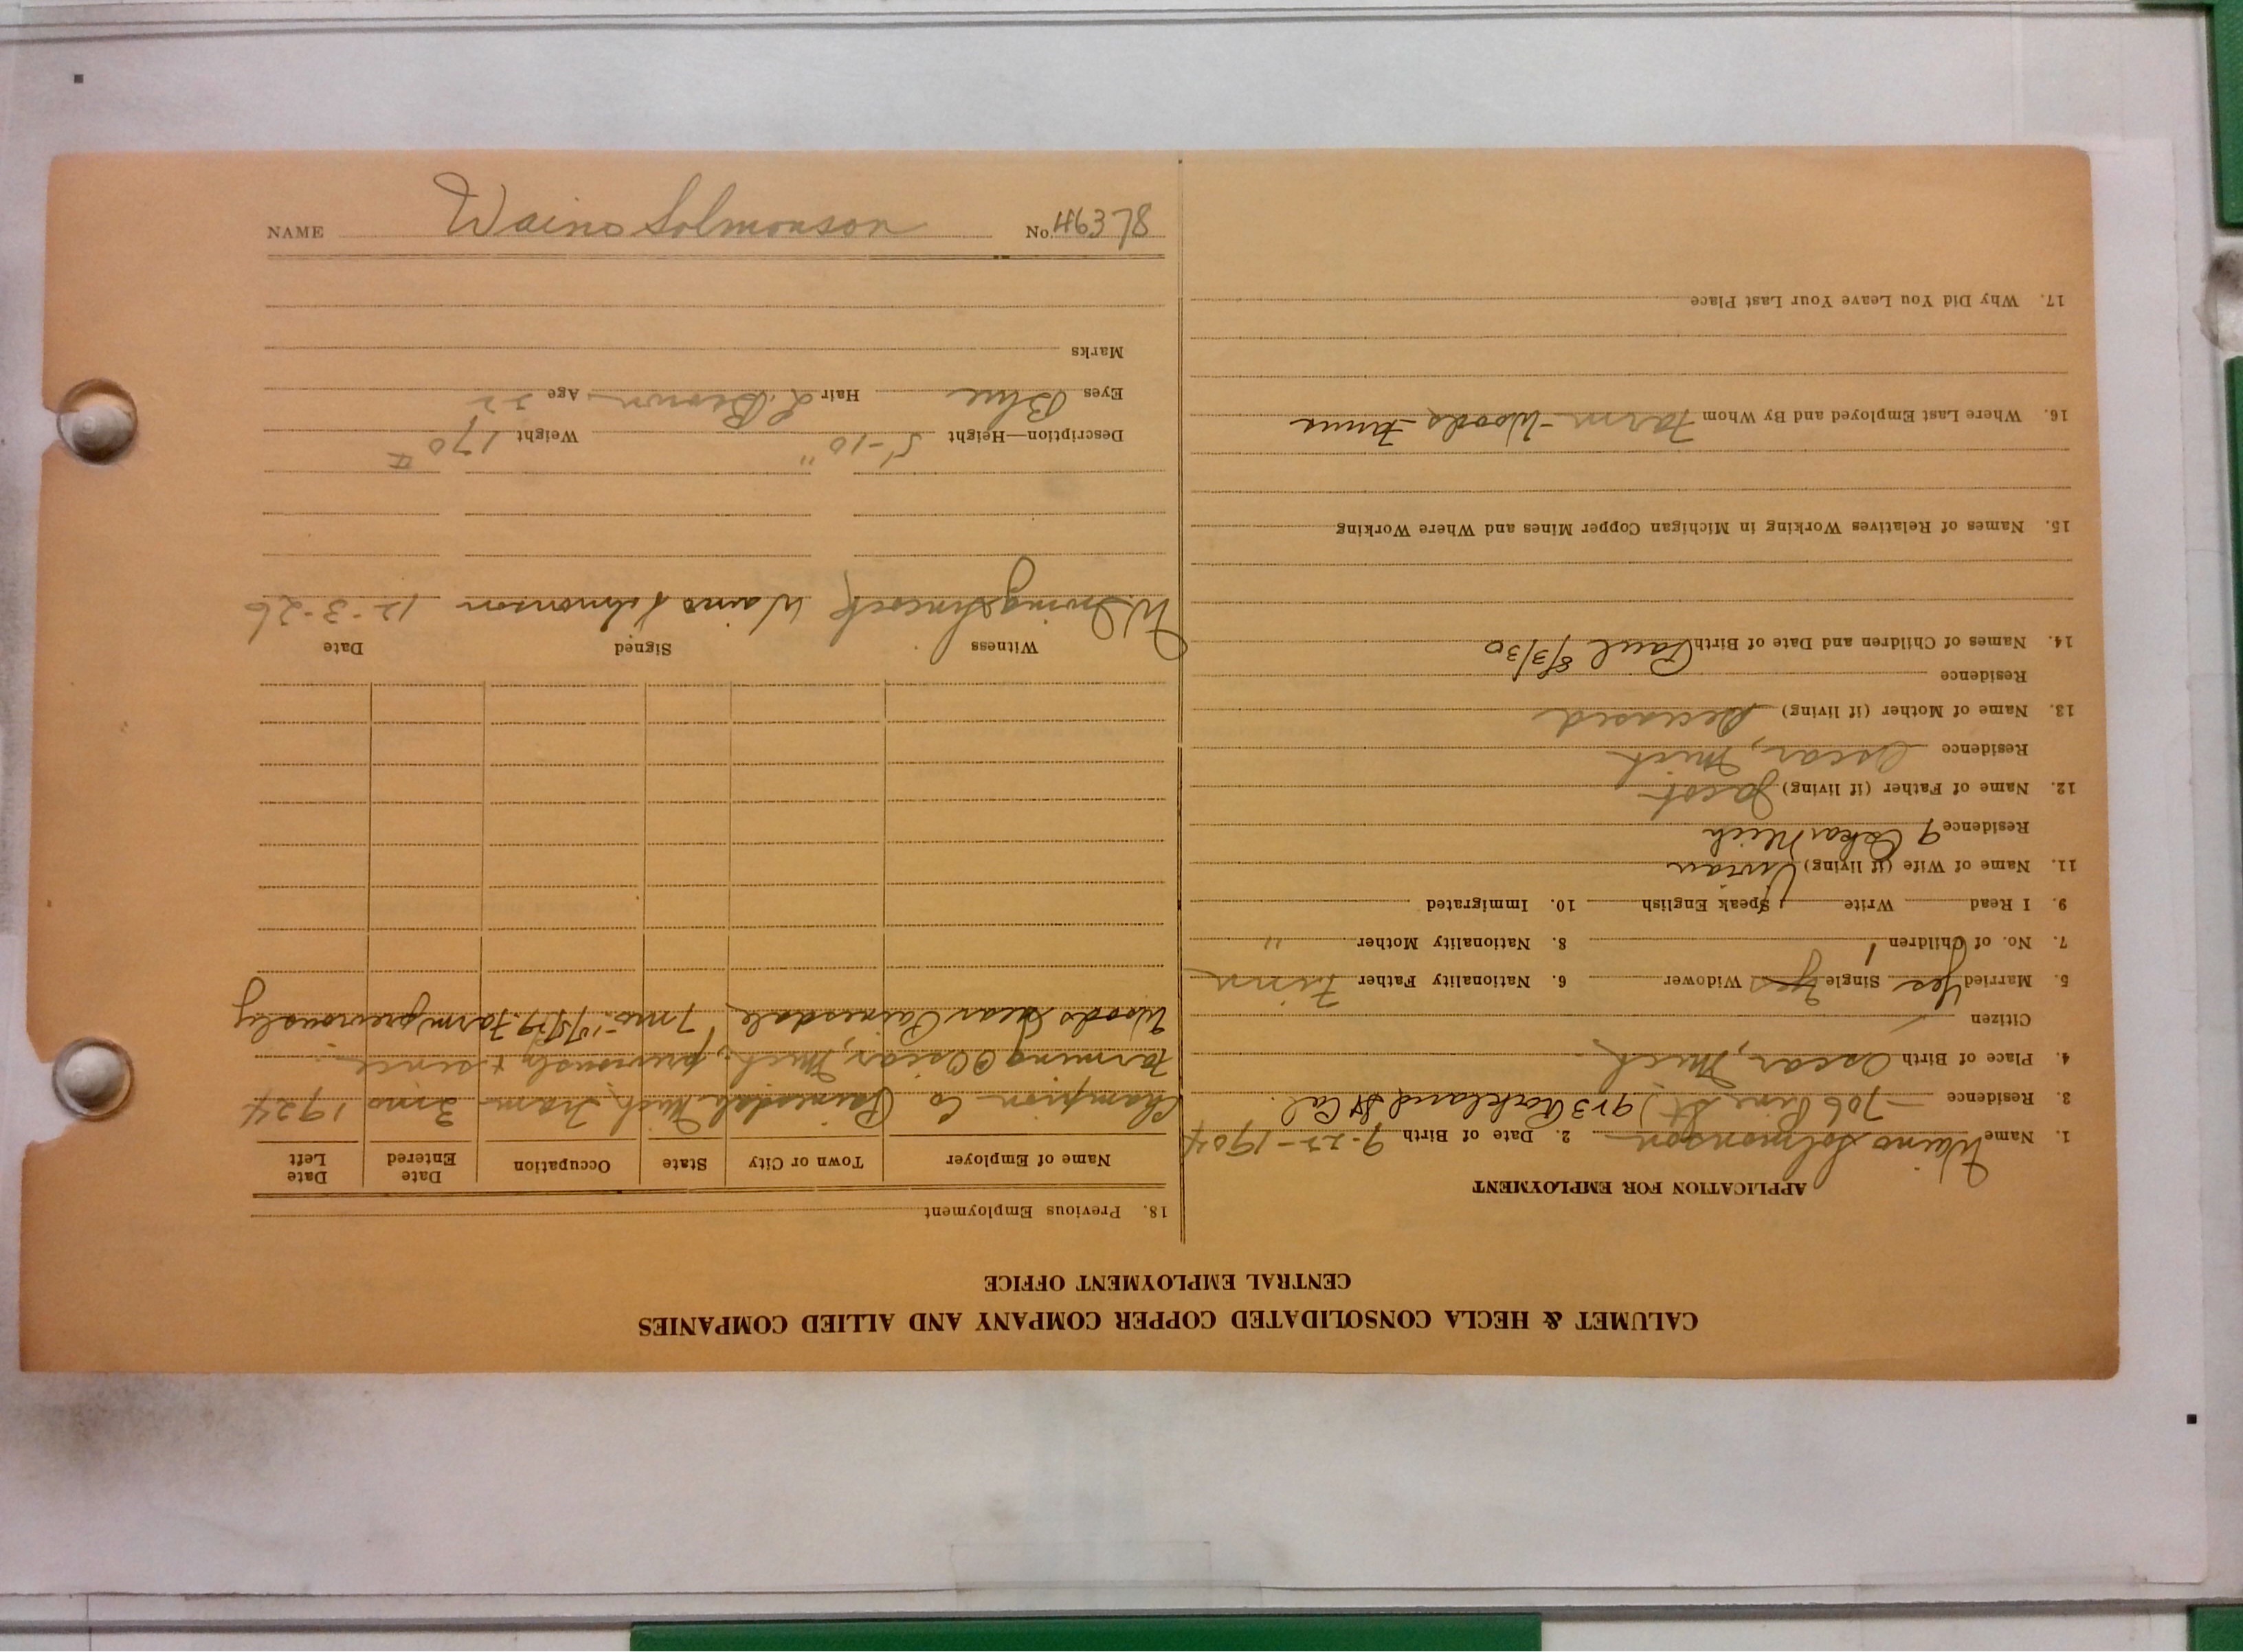 CALUMET & HECLA CONSOLIDATED COPPER COMPANY AND ALLIED COMPANIES
CENTRAL EMPLOYMENT OFFICE
APPLICATION FOR EMPLOYMENT
1. Name Waino Solmonson 2. Date of Birth 9-22-1904
3. Residence 706 Pine St) 913 Oakland St Cal.
4. Place of Birth Oscar, Mich
Citizen
5. Married Yes Single Yes Widower 6. Nationality Father Finn
7. No. of Children 1 8. Nationality Mother "
9. I Read Write Speak English 10. Immigrated
11. Name of Wife (if living) Vivian
Residence Oskar Mich
12. Name of Father (if living) Jacob
Residence Oscar, Mich
13. Name of Mother (if living) Deceased
Residence
14. Names of Children and Date of Birth Paul 8/3/30
15. Names of Relatives Working in Michigan Copper Mines and Where Working
16. Where Last Employed and By Whom Farm - Woods
17. Why Did You Leave Your Last Place
18. Previous Employment
Name of Employer Town or City State Occupation Date Entered Date Left
Champion Co Painesdale Mich Tram 3 mo 1924
Farming @ Oscar, Mich, previously & since.
Woods near Painesdale 7 mo. Farm previously
Witness Signed Date
W. Irving Waino Solmonson 12-3-26
Description—Height 5'-10" Weight 170 #
Eyes Blue Hair L. Brown Age 22
Marks
NAME Waino Solmonson No. 46378